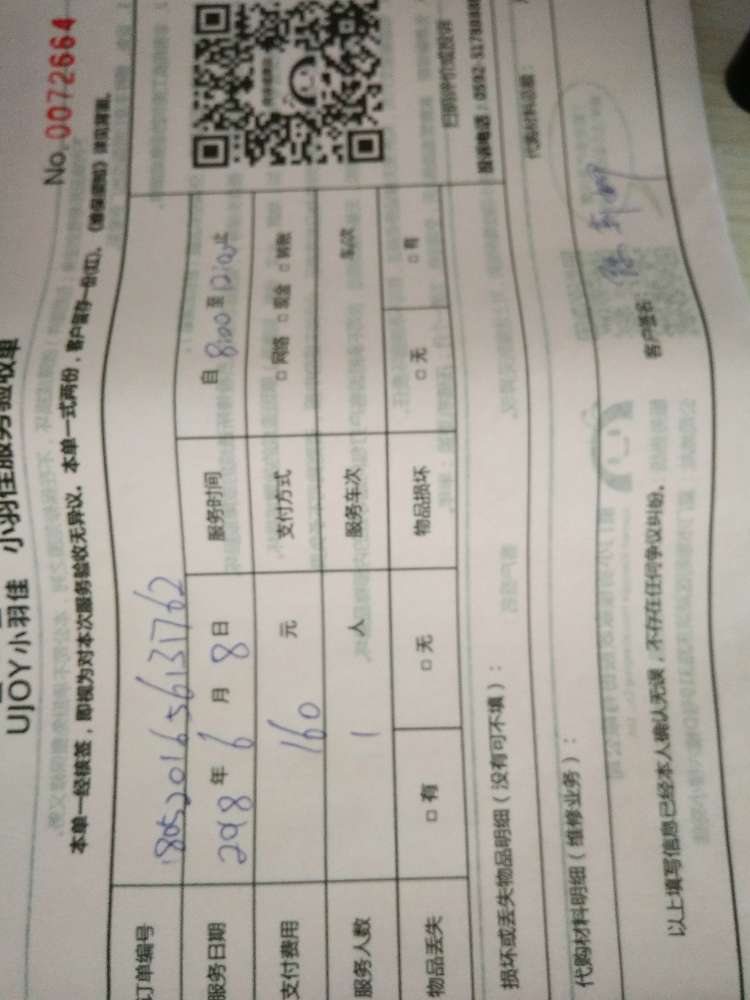 UJOY小羽佳 小羽佳服务验收单
No. 0072664
本单一经核签，即视为对本次服务验收无异议。本单一式两份，客户留存一份(红)。
订单编号 180520165613 1762
服务日期 2918 年 6 月 8 日 服务时间 自 8:00 至 12:00 止
支付费用 160 元 支付方式 □ 网络 □ 现金 □ 转账
服务人数 1 人 服务车次 车/次
物品丢失 □ 有 □ 无 物品损坏 □ 无 □ 有
扫码评价或投诉
损坏或丢失物品明细（没有可不填）：
投诉电话：0592-5178888
代购材料明细（维修业务）：
代购材料总额：
以上填写信息已经本人确认无误，不存在任何争议纠纷。
客户签名